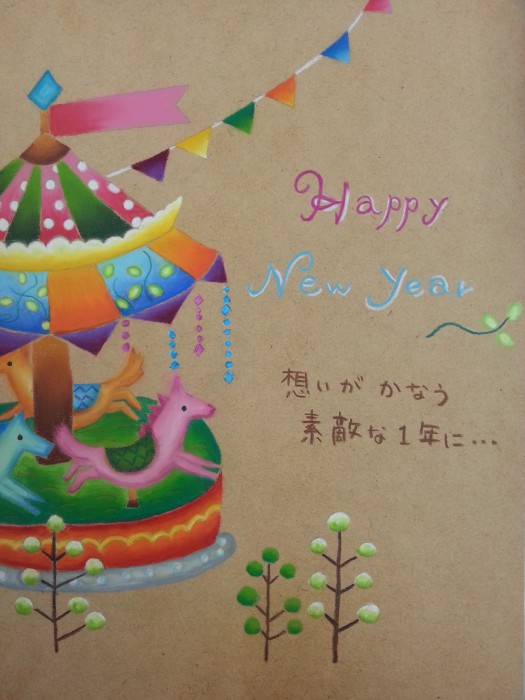 Happy
New Year
想いが かなう
素敵な1年に...